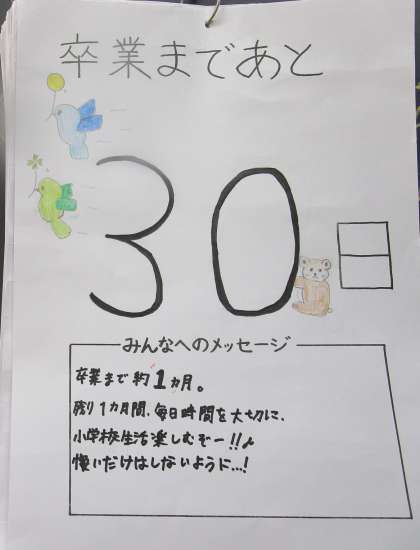 卒業まであと
30日
みんなへのメッセージ
卒業まで約1カ月。
残り1カ月間、毎日時間を大切に、
小学校生活楽しむぞー!!
悔いだけはしないように…!